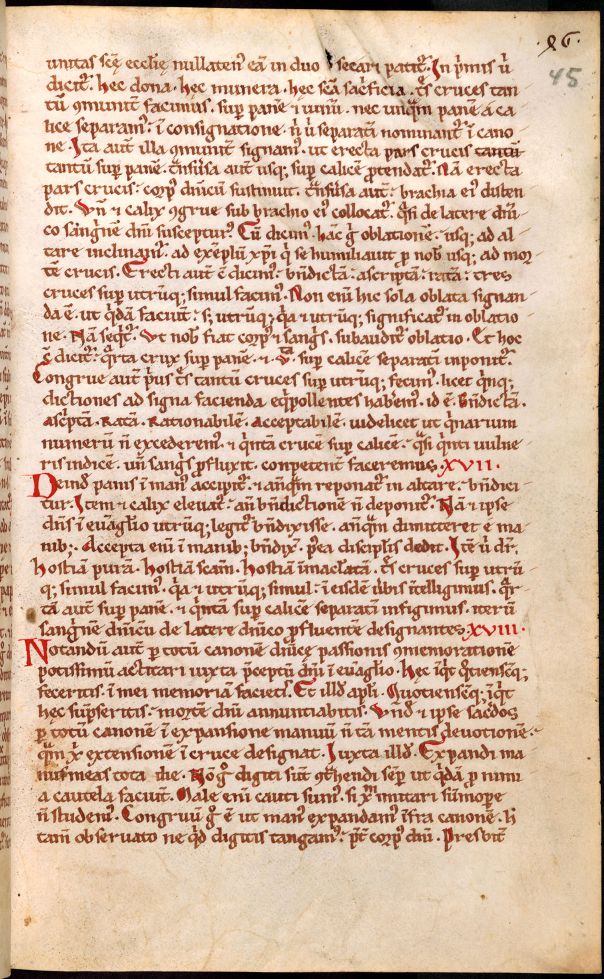 ·96·
45
unitas scē ecclīe nullaten' eā in duo secari patit̄. In p̄mis ū
dicit̄. hec dona. hec munera. hec scā sac̄ficia. t̄s cruces tan
tū 9munit̄ facimus. sup panē & uinū. nec unq̄m panē a ca
lice separam'. ī consignatione. n̄ ū separati nominant̄ ī cano
ne. Ita aut̄ illa 9munit̄ signam'. ut erecta pars crucis tantū
tantū sup panē. t̄nsūsa aut̄ usq; sup calicē p̄tendat̄. Nā erecta
pars crucis. corp' dn̄icū sustinuit. t̄nsūsa aut̄. brachia ei' disten
dit. Vn̄ & calix 9grue sub brachio ei' collocat̄. q̄si de latere dn̄i
co sangnē dn̄i suscepturus. Cū dicim'. hāc ḡ oblationē. usq; ad al
tare inclinam'. ad exēplū xp̄i q̄ se humiliauit p nob' usq; ad mor
tē crucis. Trecti aut̄ ē dicim'. bn̄dictā. ascriptā. ratā. tres
cruces sup utrūq; simul facim'. Non enī hic sola oblata signan
da ē. ut q̄dā faciunt. s; utrūq; q̄a & utrūq; significat̄ in oblatio
ne. Nā seqt̄. Vt nob' fiat corp' & sangs. subaudit̄ oblatio. Et hoc
ē dicit̄. q̄rta crux sup panē. & v. sup calicē separatī inponit̄.
Congrue aut̄ p̄us t̄s tantū cruces sup utrūq; fecim'. licet q̄nq;
dictiones ad signa facienda eq̄pollentes habem'. id ē. bn̄dictā.
Asc̄ptā. Ratā. Rationabilē. Acceptabilē. uidelicet ut q̄narium
numerū n̄ excederem'. & q̄ntā crucē sup calicē. q̄si q̄nti uulne
ris indicē. un̄ sangs p̄fluxit. conpetent̄ faceremus. XVII.
Deind panis ī man' accipit̄. & anq̄m reponat̄ in altare. bn̄dici
tur. Item & calix eleuat̄. an̄ bn̄dictionē n̄ deponit̄. Nā & ipse
dn̄s ī euāglio utrūq; legit̄ bn̄dixisse. anq̄m dimitteret e ma
nib;. Accepta enī ī manib; bn̄dix̄. p̄ea discipl̄is dedit. Itē ū dr̄.
hostiā purā. hostiā scam. hostiā īmaclatā. t̄s cruces sup utrū
q; simul facim'. q̄a & utrūq; simul. ī eisdē ūbis ītelligimus. q̄r
tā aut̄ sup panē. & q̄ntā sup calicē separatī infigimus. iterū
sangnē dn̄icū de latere dn̄ico p̄fluentē designantes. XVIII.
Notandū aut̄ p totū canonē dn̄icē passionis 9memorationē
potissimū actitari iuxta p̄ceptū dn̄i ī euāglio. Hec īqt q̄tienscūq;
feceritis. ī mei memoriā facietis. Et illđ apl̄i. Quotienscūq; īqt
hec sūpseritis. mortē dn̄i annuntiabitis. Vnđ & ipse sacđos
p totū canonē ī expansione manuū n̄ tā mentis deuotionē
q̄m xp̄i extensionē ī cruce designat. Iuxta illđ. Expandi ma
nus meas tota die. Nō ḡ digiti sūt 9t̄hendi sēp ut q̄dā p nimi
a cautela faciunt. Male enī cauti sum'. si xp̄m imitari sūmope
n̄ studem'. Congruū ḡ ē ut man' expandam' īfra canonē. h̄
tam̄ obseruato ne q̄d digitis tangam'. p̄t̄ corp' dn̄i. Presbit̄